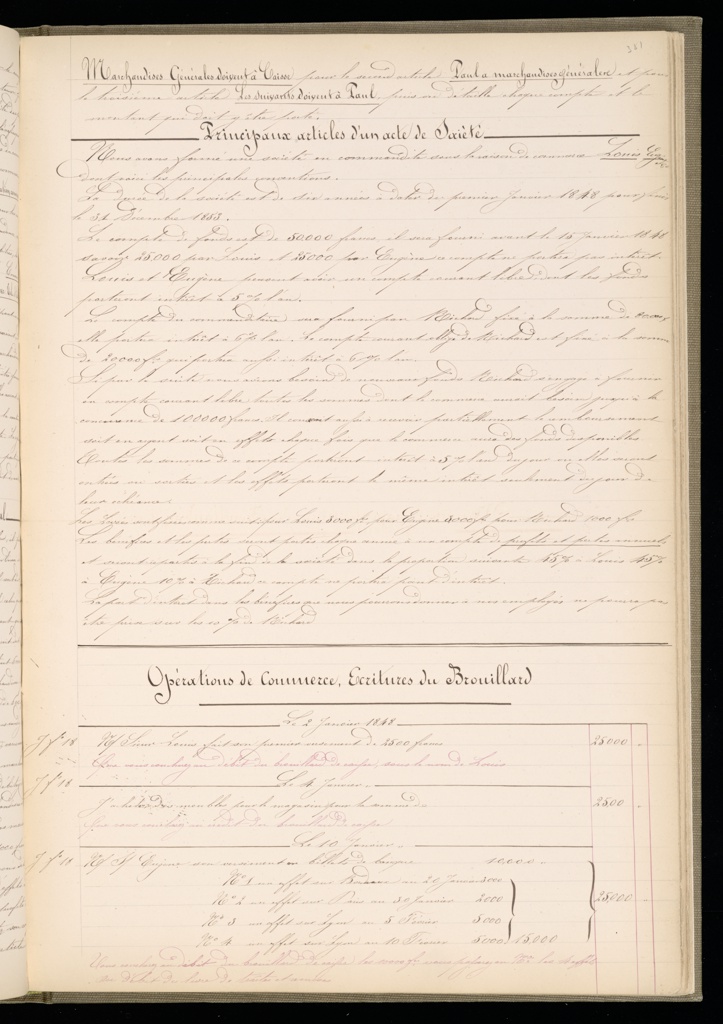 361
Marchandises Générales doivent à Caisse pour le second article Paul a marchandises générales et pour
le troisième article Les suivants doivent à Paul, puis on détaille chaque compte et le
montant que doit y être porté.
Principaux articles d'un acte de Société
Nous avons formé une société en commandite sous la raison de commerce Louis Eug
dont voici les principales conventions.
La durée de la société est de années à dater du premier Janvier 1848 pour
le 31 Décembre 1853.
Le compte de fonds est de 50.000 francs, il sera fourni avant le 15 Janvier 1848
savoir 25.000 par Louis et 25000 par Eugène ce compte ne portera pas intérêt.
Louis et Eugène pourront avoir un compte courant libre dont les fonds
porteront intérêt à 5 % l'an.
Le compte du commanditaire sera fourni par Richard fixé à la somme de
elle portera intérêt à 6 % l'an. Le compte courant obligé de Richard est fixé à la somme
de 20000 f. qui portera aussi intérêt à 6 % l'an.
Si par la suite nous avions besoin de nouveaux fonds Richard s'engage à fournir
en compte courant libre toutes les sommes dont le commerce aurait besoin jusqu'à la
concurrence de 100000 francs. Il consent aussi à recevoir partiellement le remboursement
soit en argent soit en effets chaque fois que le commerce aura des fonds disponibles
Toutes les sommes de ce compte porteront intérêt à 5 % l'an du jour où elles seront
entrées ou sorties et les effets porteront le même intérêt seulement du jour de
leur échéance.
Les levées sont fixées comme suit: pour Louis 3000 f. pour Eugène 3000 f. pour Richard 1000 f.
Les bénéfices et les pertes seront portés chaque année à un compte de profits et pertes annuels
et seront répartis à la fin de la société dans la proportion suivante 45 % à Louis 45 %
à Eugène 10 % à Richard ce compte ne portera point d'intérêt.
La part d'intérêt dans les bénéfices que nous pourrions donner à nos employés ne pourra pas
être prise sur les 10 % de Richard
Opérations de Commerce, Ecritures du Brouillard
Le 2 Janvier 1848
J f° 18 N/ Sieur Louis fait son premier versement de 2500 francs 25000
Que vous portez au débit du brouillard de caisse, sous le nom de Louis
J f° 18 Le 4 Janvier
J'achète des meubles pour le magasin pour la somme de 2500
Que vous inscrivez au crédit du brouillard de caisse
Le 10 Janvier
J f° 19 N/ Sr Eugène son versement en billets de banque 10,000
N° 1 un effet sur Bordeaux au 20 Janvier 3000
N° 2 un effet sur Paris au 30 Janvier 2000 25,000
N° 3 un effet sur Lyon au 5 Février 5000
N° 4 un effet sur Lyon au 10 Février 5000 15,000